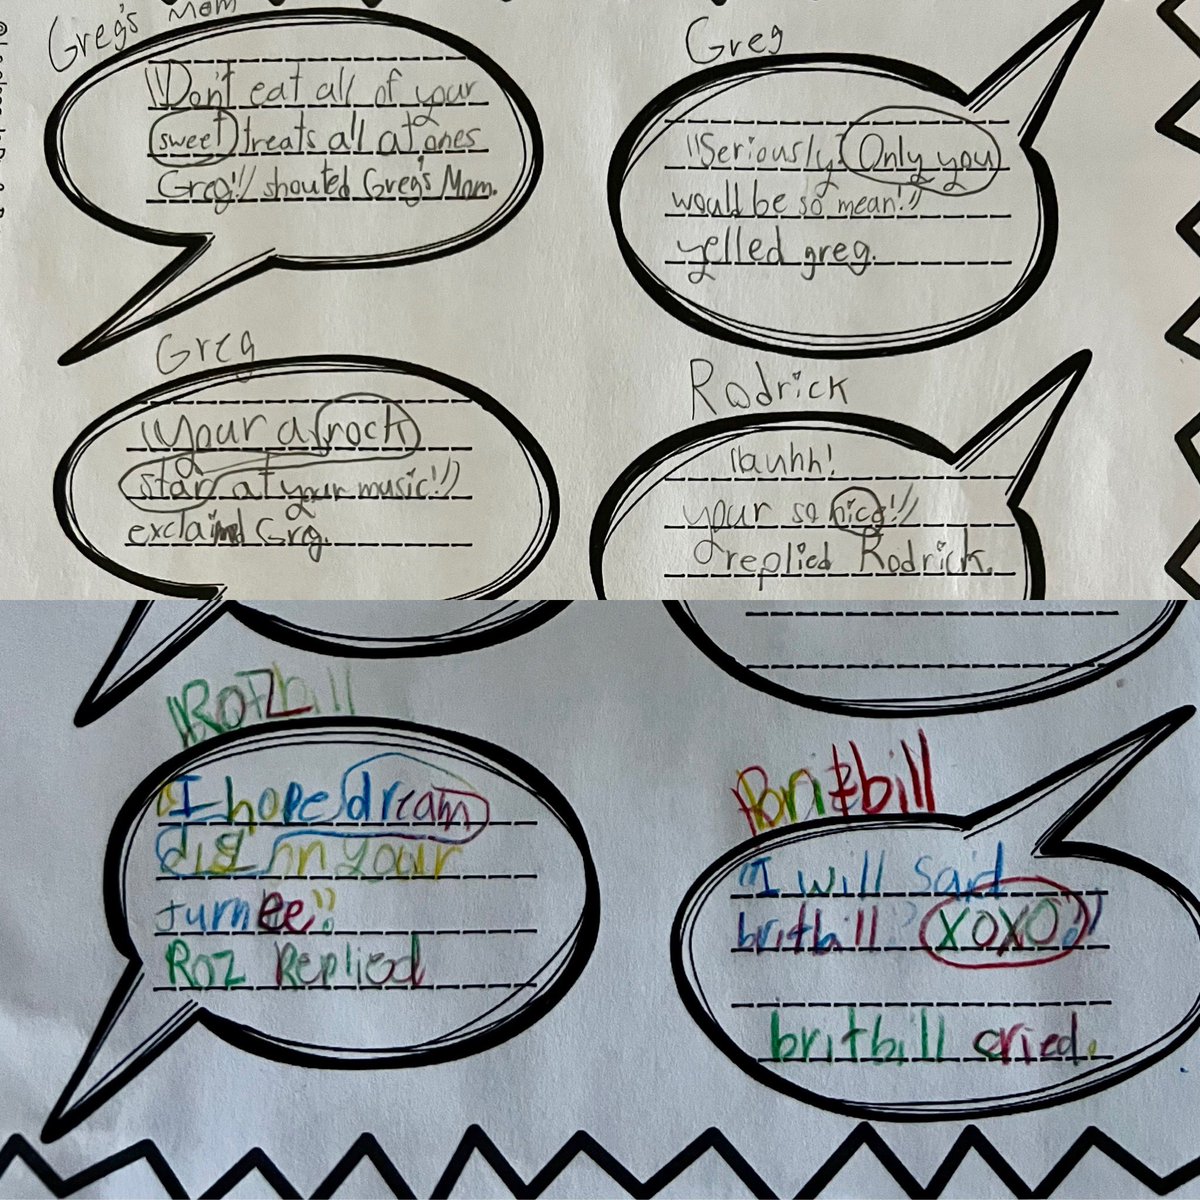 Greg's Mom
"Don't eat all of your
sweet treats all at ones
Greg!" shouted Greg's Mom.
Greg
"Seriously! Only you
would be so mean!"
yelled greg.
Greg
"your a rock
star at your music!"
exclaimd Grg.
Rodrick
"auhh!
your so nice!"
replied Rodrick.
Rozbill
"I hope dream
big in your
jurnee"
Roz Replied
Britbill
"I will said
britbill" "XOXO!"
britbill cried.